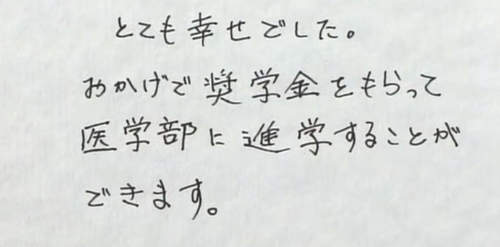 とても幸せでした。
おかげで奨学金をもらって
医学部に進学することが
できます。